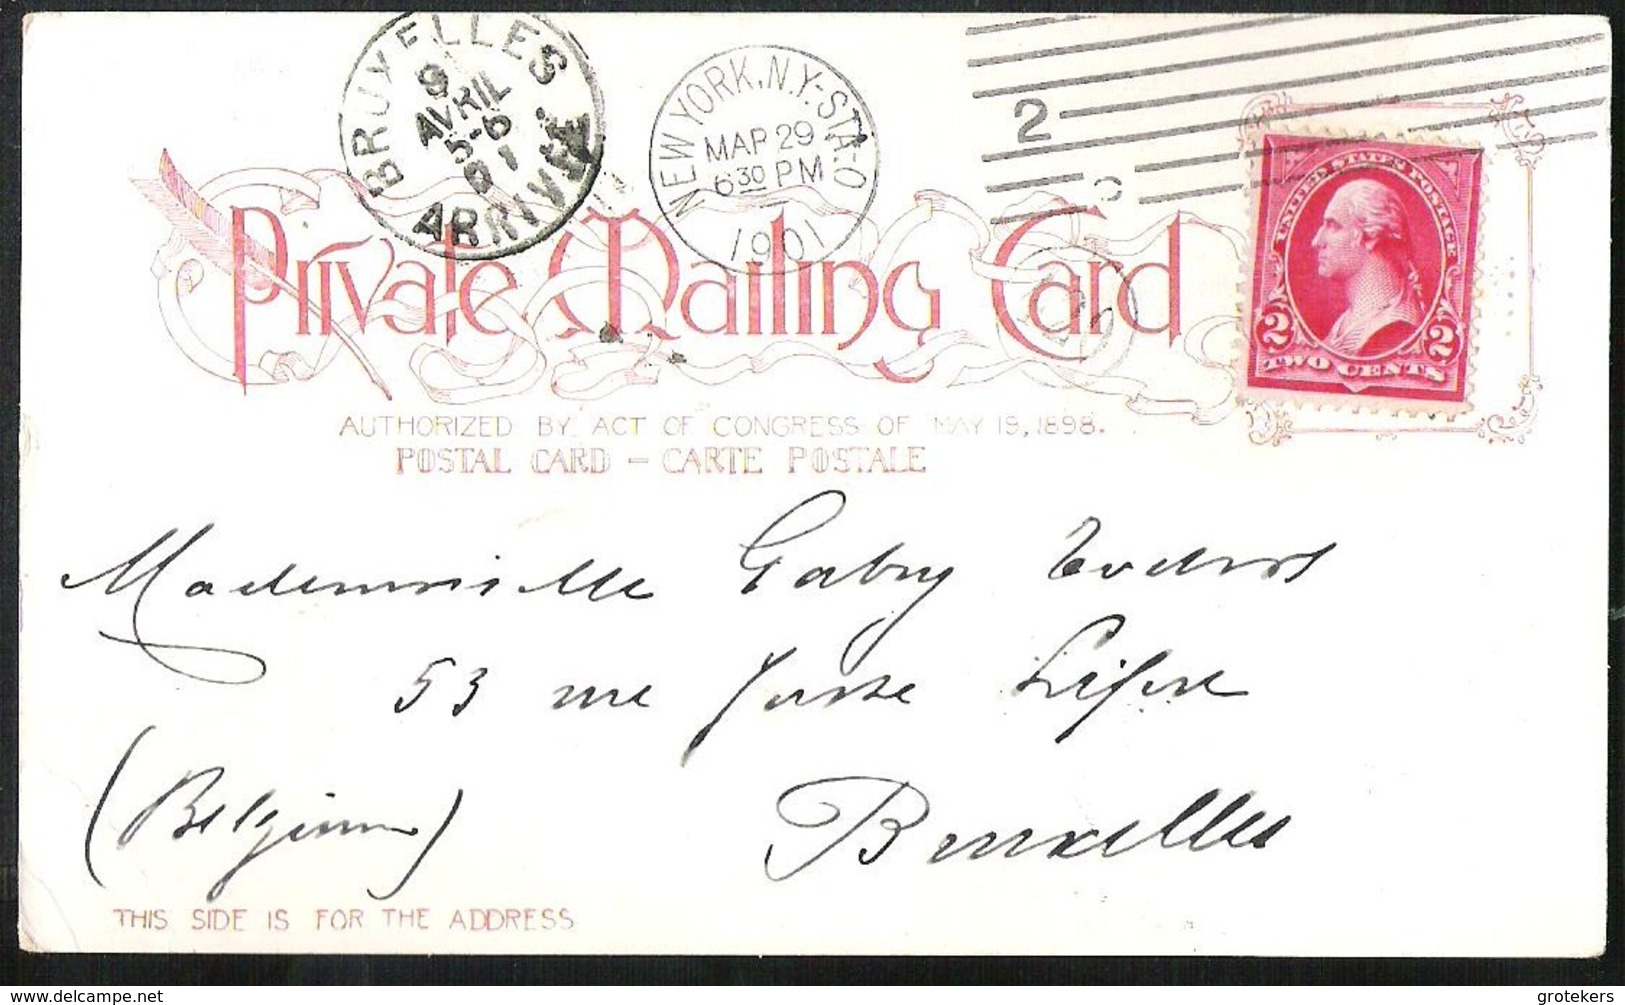 BRUXELLES
9
AVRIL
5-6
01
ARRIVÉE
NEW YORK, N.Y.-STA-O
MAR 29
6 30 PM
1901
2
UNITED STATES POSTAGE
2 2
TWO CENTS
Private Mailing Card
AUTHORIZED BY ACT OF CONGRESS OF MAY 19, 1898.
POSTAL CARD – CARTE POSTALE
Mademoiselle Gaby
53 rue Josse
(Belgium) Bruxelles
THIS SIDE IS FOR THE ADDRESS
grotekers